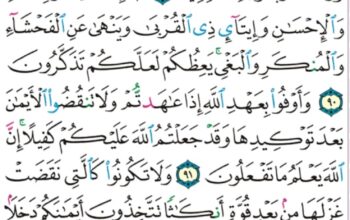 وَالْإِحْسَٰنِ وَإِيتَآئِ ذِى الْقُرْبَىٰ وَيَنْهَىٰ عَنِ الْفَحْشَآءِ
وَالْمُنكَرِ وَالْبَغْىِ يَعِظُكُمْ لَعَلَّكُمْ تَذَكَّرُونَ
٩٠ وَأَوْفُوا۟ بِعَهْدِ اللَّهِ إِذَا عَٰهَدتُّمْ وَلَا تَنقُضُوا۟ الْأَيْمَٰنَ
بَعْدَ تَوْكِيدِهَا وَقَدْ جَعَلْتُمُ اللَّهَ عَلَيْكُمْ كَفِيلًا إِنَّ
اللَّهَ يَعْلَمُ مَا تَفْعَلُونَ ٩١ وَلَا تَكُونُوا۟ كَالَّتِى نَقَضَتْ
غَزْلَهَا مِنۢ بَعْدِ قُوَّةٍ أَنكَٰثًا تَتَّخِذُونَ أَيْمَٰنَكُمْ دَخَلًۢا